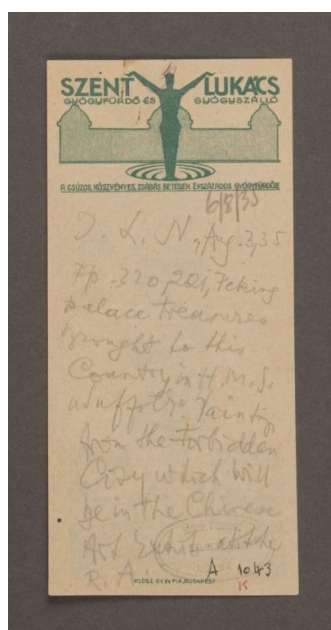 SZENT LUKÁCS
GYÓGYFÜRDŐ ÉS GYÓGYSZÁLLÓ
A CSÚZOS, KÖSZVÉNYES, ISIÁSOS BETEGEK ÉVSZÁZADOS GYÓGYFÜRDŐJE
6/8/35
I. L. N., Aug. 3, 35
Pp. 220, 221, Peking
palace treasures
brought to this
Country in H.M.S.
"Suffolk". Painting
from the Forbidden
City which will
be in the Chinese
Art Exhib. at the
R. A.
KLÖSZ GY. ÉS FIA, BUDAPEST
A 1043
K